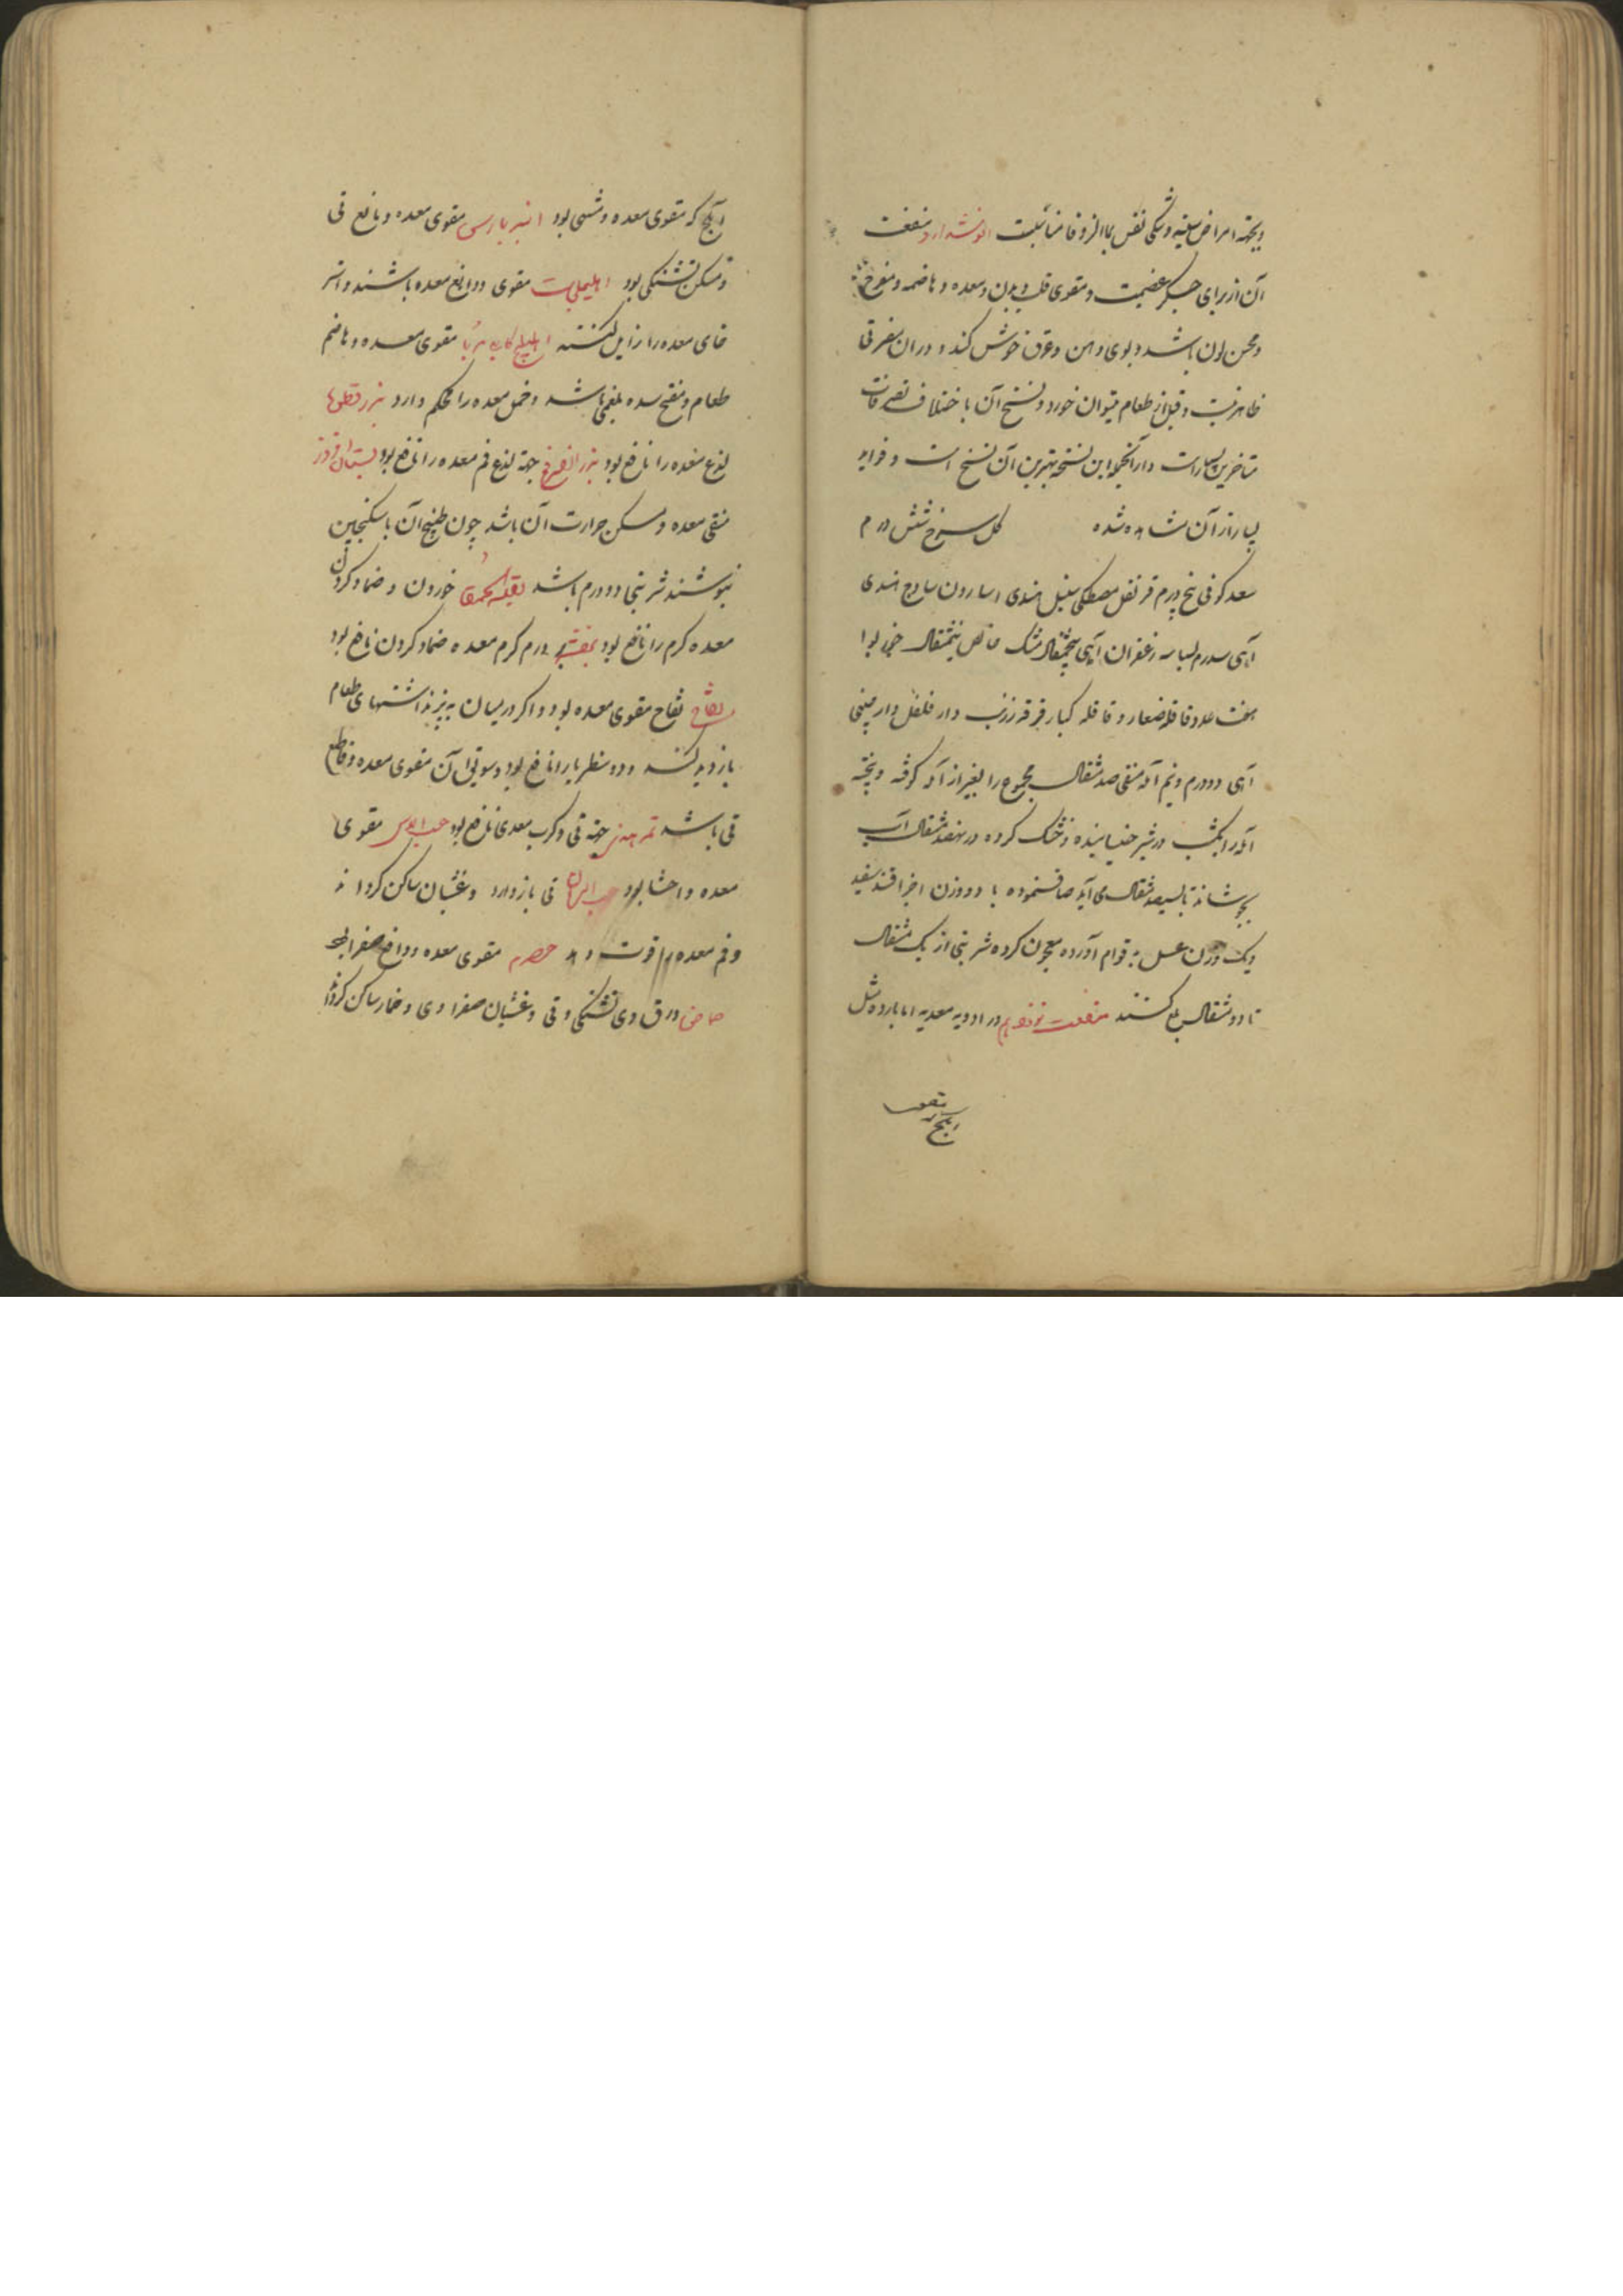 وبجهة امراض سینه و تنگی نفس بماء الزوفا مناسبت انوشدارو منفعت
آن از برای جگر عظیمست و مقوی قلب و بدن و معده و هاضمه و مفرح
و محسن لون باشد و بوی دهن و عرق خوش کند و در آن مضرتی
ظاهر نیست و قبل از طعام میتوان خورد و نسخ آن باختلاف تصرفات
متأخرین بسیار است و از آنجمله این نسخه بهترین آن نسخ است و فواید
بسیار از آن مشاهده شده گل سرخ شش درم
سعد کوفی پنج درم قرنفل مصطکی سنبل هندی اسارون سادج هندی
از هر یک سه درم بسباسه زعفران مشک خالص نیمثقال
هفت عدد قاقله صغار و قاقله کبار قرفه زرنب دار فلفل دارچینی
دو درم و نیم آمله منقی صد مثقال مجموع را بغیر از آمله کوفته و بیخته
آمله را یکشب در شیر خیسانیده و خشک کرده در مثقال آب
بجوشانند تا مثقال آید صاف نموده با دو وزن اجزا قند سفید
و یک وزن عسل به قوام آورده معجون کرده شربتی از یک مثقال
تا دو مثقال کنند منفعت نوزدهم در ادویه معدیه اما بارده مثل
آبج که مقوی معده و مشهی بود انبرباریس مقوی معده و مانع قی
و مسکن تشنگی بود اهلیلجات مقوی و دابغ معده باشند و استر
خای معده را زایل کنند اهلیلج کابلی مربا مقوی معده و هاضم
طعام و مفتح سده بلغمی باشد و خمل معده را محکم دارد بزرقطونا
لذع معده را نافع بود بزر الفرفخ جهة لذع فم معده را نافع بود بستان افروز
منقی معده و مسکن حرارت آن باشد چون طبیخ آن با سکنجبین
بنوشند شربتی دو درم باشد بقلة الحمقا خوردن و ضماد کردن
معده گرم را نافع بود بنفشه ورم گرم معده ضماد کردن نافع بود
تفاح تفاح مقوی معده بود و اگر در میان به پزند اشتهای طعام
بازدید کند و دوسنطاریا را نافع بود و سویق آن مقوی معده و قاطع
قی باشد تمر هندی جهة قی و کرب معدی نافع بود حب الآس مقوی
معده و احشا بود حب الرمان قی باز دارد و غثیان ساکن گرداند
و فم معده را قوت دهد حصرم مقوی معده و دافع صفرا بود
حماض ورق وی تشنگی و قی و غثیان صفراوی و خمار ساکن گرداند